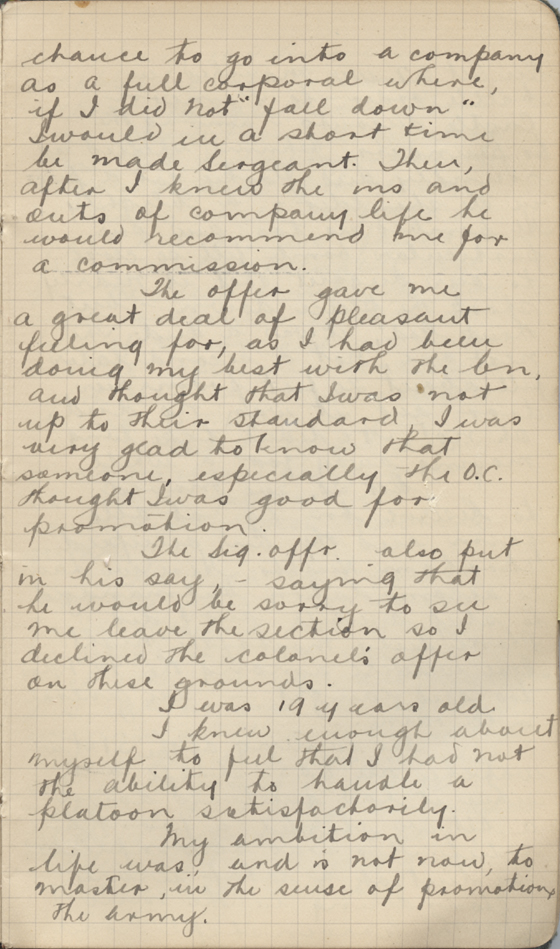 chance to go into a company
as a full corporal where,
if I did not "fall down"
I would in a short time
be made Sergeant. Then,
after I knew the ins and
outs of company life he
would recommend me for
a commission.
The offer gave me
a great deal of pleasant
feeling for, as I had been
doing my best with the bn,
and thought that I was not
up to their standard, I was
very glad to know that
someone, especially the O.C.
thought I was good for
promotion.
The Sig. offr. also put
in his say, - saying that
he would be sorry to see
me leave the section so I
declined the colonel's offer
on these grounds.
I was 19 years old
I knew enough about
myself to feel that I had not
the ability to handle a
platoon satisfactorily.
My ambition in
life was, and is not now, to
master, in the sense of promotion,
the army.